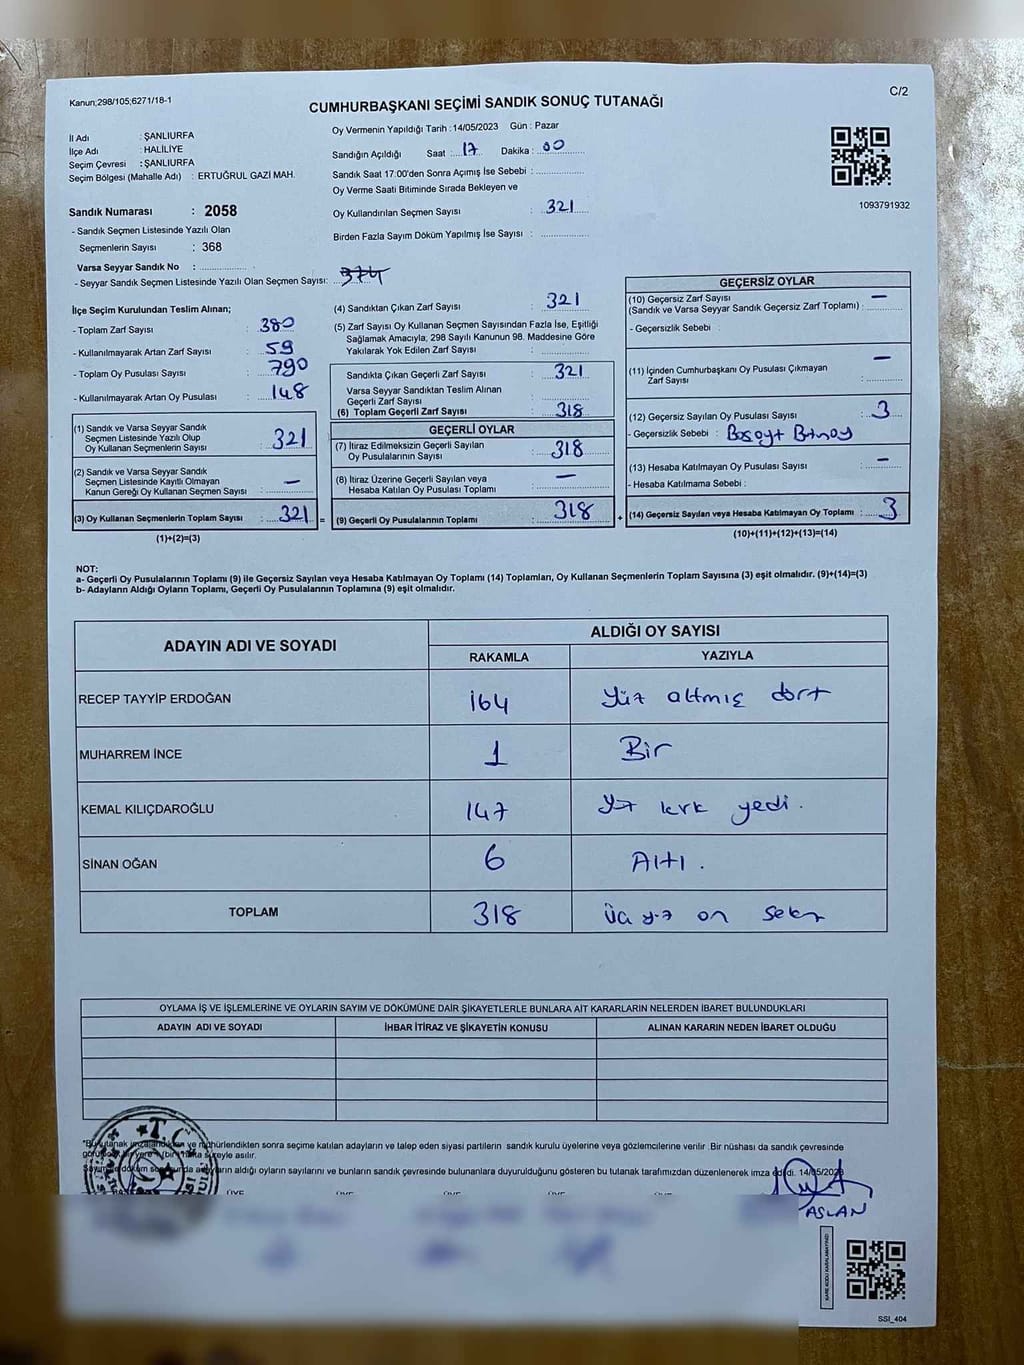 Kanun;298/105;6271/18-1
C/2
CUMHURBAŞKANI SEÇİMİ SANDIK SONUÇ TUTANAĞI
İl Adı : ŞANLIURFA
İlçe Adı : HALİLİYE
Seçim Çevresi : ŞANLIURFA
Seçim Bölgesi (Mahalle Adı) : ERTUĞRUL GAZİ MAH.
Sandık Numarası : 2058
- Sandık Seçmen Listesinde Yazılı Olan
Seçmenlerin Sayısı : 368
Varsa Seyyar Sandık No :
- Seyyar Sandık Seçmen Listesinde Yazılı Olan Seçmen Sayısı:
Oy Vermenin Yapıldığı Tarih : 14/05/2023 Gün : Pazar
Sandığın Açıldığı Saat : 17 Dakika : 00
Sandık Saat 17:00'den Sonra Açımış İse Sebebi :
Oy Verme Saati Bitiminde Sırada Bekleyen ve
Oy Kullandırılan Seçmen Sayısı : 321
Birden Fazla Sayım Döküm Yapılmış İse Sayısı :
1093791932
İlçe Seçim Kurulundan Teslim Alınan;
- Toplam Zarf Sayısı : 380
- Kullanılmayarak Artan Zarf Sayısı : 59
- Toplam Oy Pusulası Sayısı : 790
- Kullanılmayarak Artan Oy Pusulası : 148
(1) Sandık ve Varsa Seyyar Sandık
Seçmen Listesinde Yazılı Olup
Oy Kullanan Seçmenlerin Sayısı : 321
(2) Sandık ve Varsa Seyyar Sandık
Seçmen Listesinde Kayıtlı Olmayan
Kanun Gereği Oy Kullanan Seçmen Sayısı : —
(3) Oy Kullanan Seçmenlerin Toplam Sayısı : 321 =
(1)+(2)=(3)
(4) Sandıktan Çıkan Zarf Sayısı : 321
(5) Zarf Sayısı Oy Kullanan Seçmen Sayısından Fazla İse, Eşitliği
Sağlamak Amacıyla, 298 Sayılı Kanunun 98. Maddesine Göre
Yakılarak Yok Edilen Zarf Sayısı :
Sandıkta Çıkan Geçerli Zarf Sayısı : 321
Varsa Seyyar Sandıktan Teslim Alınan
Geçerli Zarf Sayısı :
(6) Toplam Geçerli Zarf Sayısı : 318
GEÇERLİ OYLAR
(7) İtiraz Edilmeksizin Geçerli Sayılan
Oy Pusulalarının Sayısı : 318
(8) İtiraz Üzerine Geçerli Sayılan veya
Hesaba Katılan Oy Pusulası Toplamı : —
(9) Geçerli Oy Pusulalarının Toplamı : 318 +
GEÇERSİZ OYLAR
(10) Geçersiz Zarf Sayısı
(Sandık ve Varsa Seyyar Sandık Geçersiz Zarf Toplamı) : —
- Geçersizlik Sebebi :
(11) İçinden Cumhurbaşkanı Oy Pusulası Çıkmayan
Zarf Sayısı : —
(12) Geçersiz Sayılan Oy Pusulası Sayısı : 3
- Geçersizlik Sebebi :
(13) Hesaba Katılmayan Oy Pusulası Sayısı : —
- Hesaba Katılmama Sebebi :
(14) Geçersiz Sayılan veya Hesaba Katılmayan Oy Toplamı : 3
(10)+(11)+(12)+(13)=(14)
NOT:
a- Geçerli Oy Pusulalarının Toplamı (9) ile Geçersiz Sayılan veya Hesaba Katılmayan Oy Toplamı (14) Toplamları, Oy Kullanan Seçmenlerin Toplam Sayısına (3) eşit olmalıdır. (9)+(14)=(3)
b- Adayların Aldığı Oyların Toplamı, Geçerli Oy Pusulalarının Toplamına (9) eşit olmalıdır.
ADAYIN ADI VE SOYADI
ALDIĞI OY SAYISI
RAKAMLA YAZIYLA
RECEP TAYYİP ERDOĞAN 164 Yüz altmış dört
MUHARREM İNCE 1 Bir
KEMAL KILIÇDAROĞLU 147 Yüz kırk yedi.
SİNAN OĞAN 6 Altı.
TOPLAM 318 Üç yüz on sekiz
OYLAMA İŞ VE İŞLEMLERİNE VE OYLARIN SAYIM VE DÖKÜMÜNE DAİR ŞİKAYETLERLE BUNLARA AİT KARARLARIN NELERDEN İBARET BULUNDUKLARI
ADAYIN ADI VE SOYADI İHBAR İTİRAZ VE ŞİKAYETİN KONUSU ALINAN KARARIN NEDEN İBARET OLDUĞU
T.C.
*Bu tutanak imzalandıktan ve mühürlendikten sonra seçime katılan adayların ve talep eden siyasi partilerin sandık kurulu üyelerine veya gözlemcilerine verilir. Bir nüshası da sandık çevresinde
süreyle asılır.
adayların aldığı oyların sayılarını ve bunların sandık çevresinde bulunanlara duyurulduğunu gösteren bu tutanak tarafımızdan düzenlenerek imza edildi. 14/05/2023
ÜYE ÜYE ÜYE ÜYE ÜYE
ASLAN
KARE KODU KARALAMAYINIZ!
SSI_404